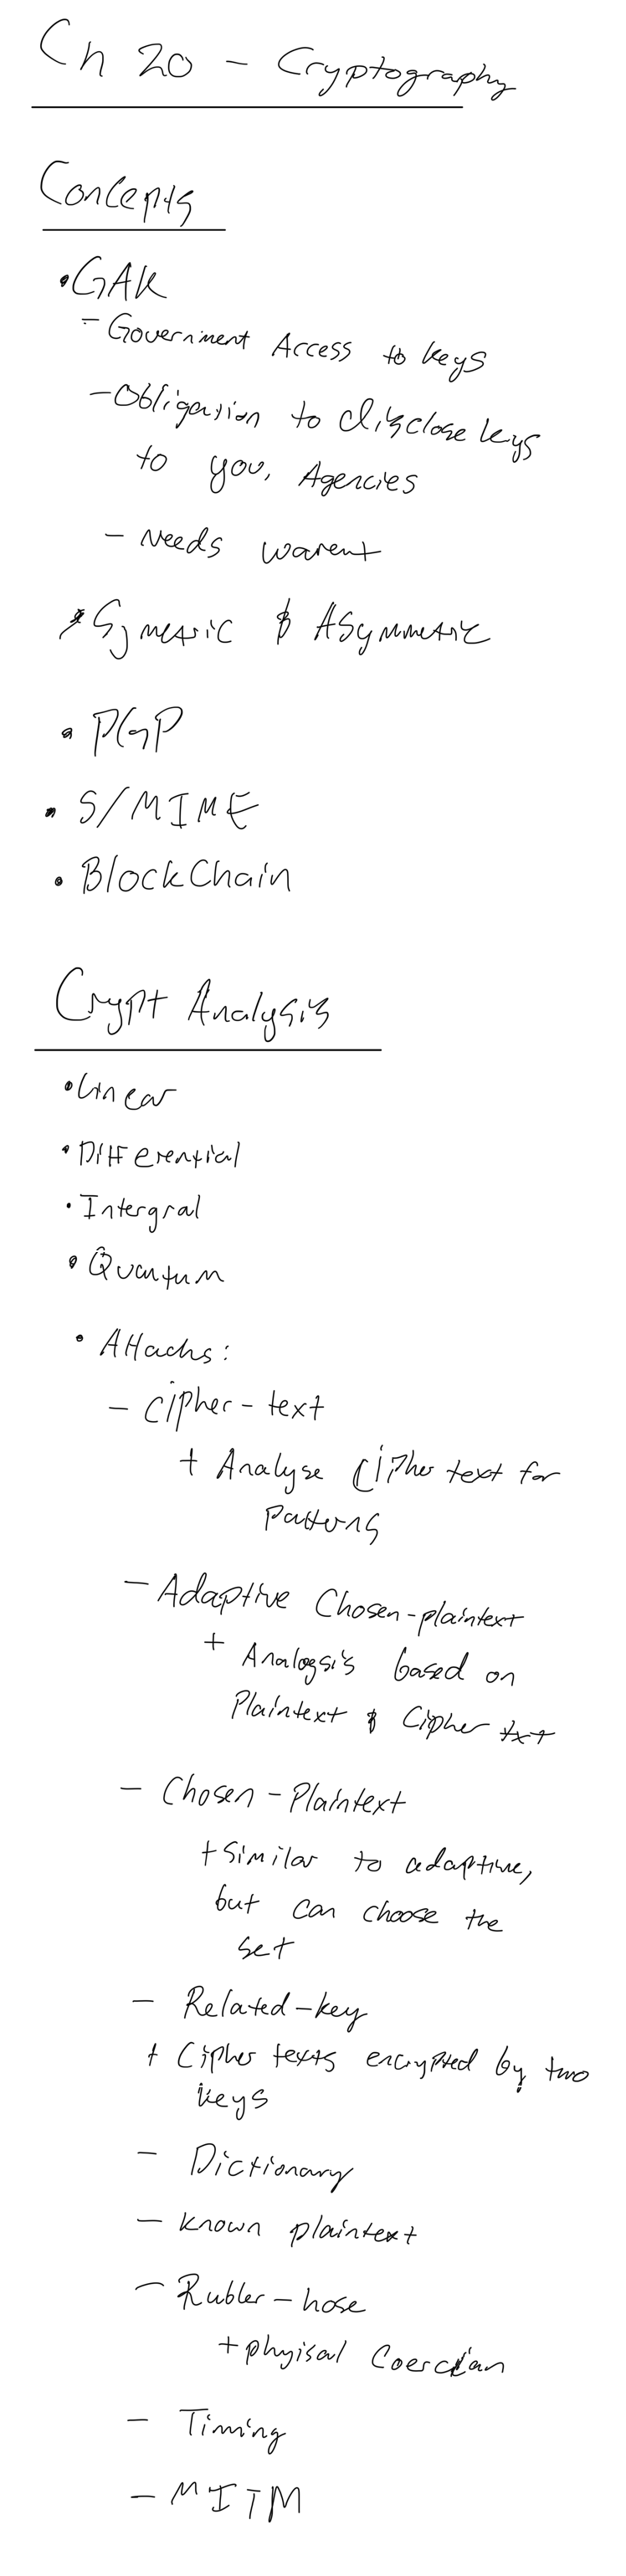 Ch 20 - Cryptography
Concepts
• GAK
- Government Access to keys
- Obligation to disclose keys
to gov. Agencies
- Needs warent
• Symetric & ASymmetric
• PGP
• S/MIME
• BlockChain
Crypt Analysis
• Linear
• Differential
• Intergral
• Quantum
• Attacks:
- Cipher-text
+ Analyse Cipher text for
Patterns
- Adaptive Chosen-plaintext
+ Analogsis based on
Plaintext & Cipher txt
- Chosen-Plaintext
+ Similar to adaptive,
but can choose the
set
- Related-key
+ Cipher texts encrypted by two
keys
- Dictionary
- known plaintext
- Rubber-hose
+ phyisal Coercian
- Timing
- MITM